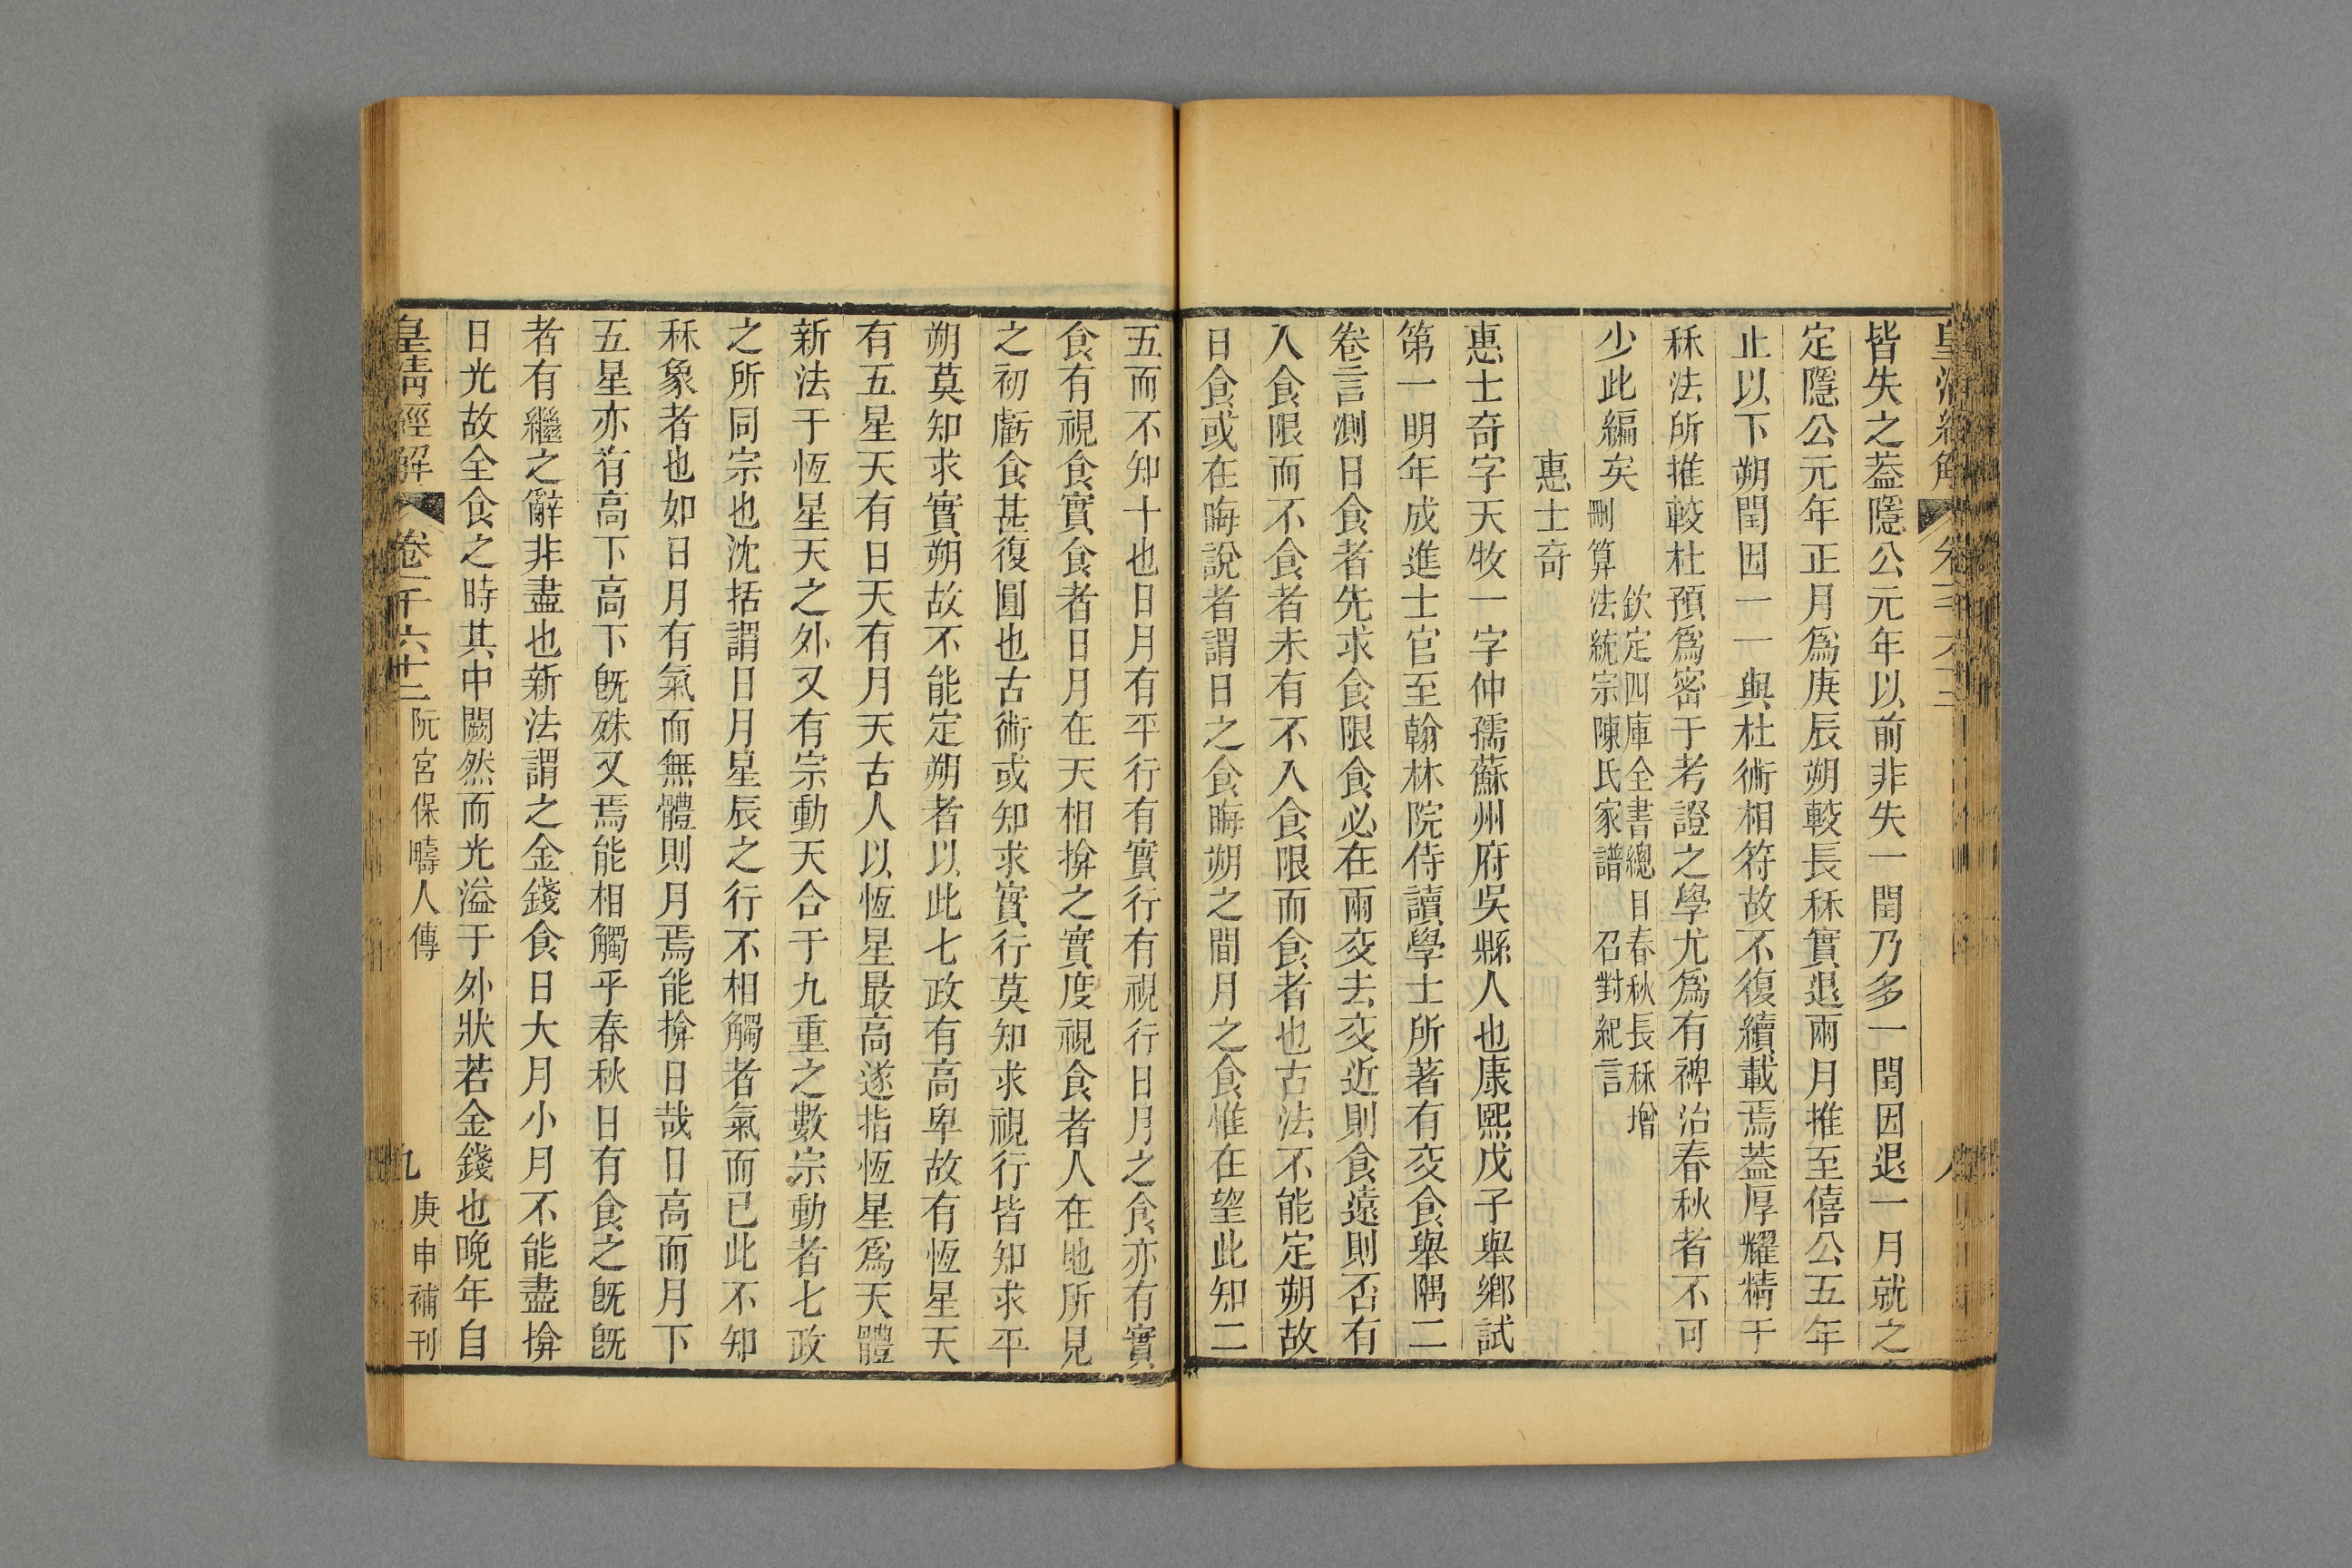 皇清經解 卷一千六十二 八
皆失之葢隱公元年以前非失一閏乃多一閏因退一月就之
定隱公元年正月爲庚辰朔較長秝實退兩月推至僖公五年
止以下朔閏因一一與杜術相符故不復續載焉葢厚耀精于
秝法所推較杜預爲密于考證之學尤爲有裨治春秋者不可
少此編矣欽定四庫全書總目春秋長秝增
刪算法統宗陳氏家譜 召對紀言
惠士奇
惠士奇字天牧一字仲孺蘇州府吳縣人也康熙戊子舉鄉試
第一明年成進士官至翰林院侍讀學士所著有交食舉隅二
卷言測日食者先求食限食必在兩交去交近則食遠則否有
入食限而不食者未有不入食限而食者也古法不能定朔故
日食或在晦說者謂日之食晦朔之間月之食惟在望此知二
五而不知十也日月有平行有實行有視行日月之食亦有實
食有視食實食者日月在天相揜之實度視食者人在地所見
之初虧食甚復圓也古術或知求實行莫知求視行皆知求平
朔莫知求實朔故不能定朔者以此七政有高卑故有恆星天
有五星天有日天有月天古人以恆星最高遂指恆星爲天體
新法于恆星天之外又有宗動天合于九重之數宗動者七政
之所同宗也沈括謂日月星辰之行不相觸者氣而已此不知
秝象者也如日月有氣而無體則月焉能揜日哉日高而月下
五星亦有高下高下旣殊又焉能相觸乎春秋日有食之旣旣
者有繼之辭非盡也新法謂之金錢食日大月小月不能盡揜
日光故全食之時其中闕然而光溢于外狀若金錢也晚年自
皇清經解 卷一千六十二 阮宮保疇人傳 九 庚申補刊